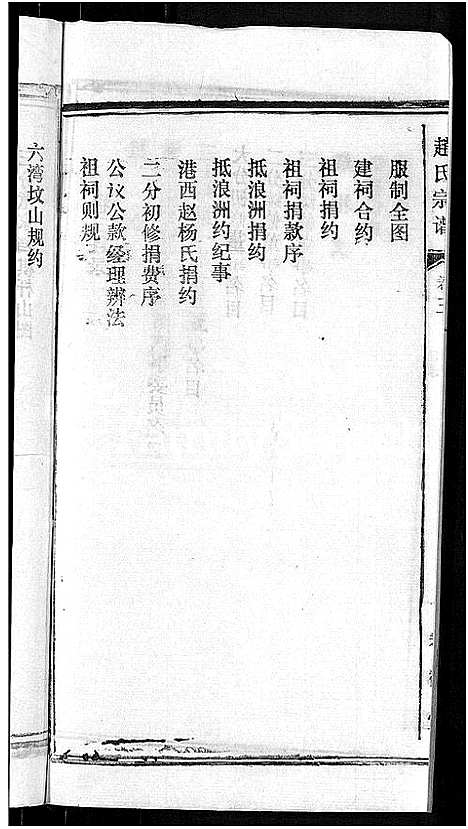 赵氏宗谱
卷三
服制全图
建祠合约
祖祠捐约
祖祠捐款序
抵浪洲捐约
抵浪洲约纪事
港西赵杨氏捐约
二分初修捐费序
公议公款经理办法
祖祠则规
六湾坟山规约